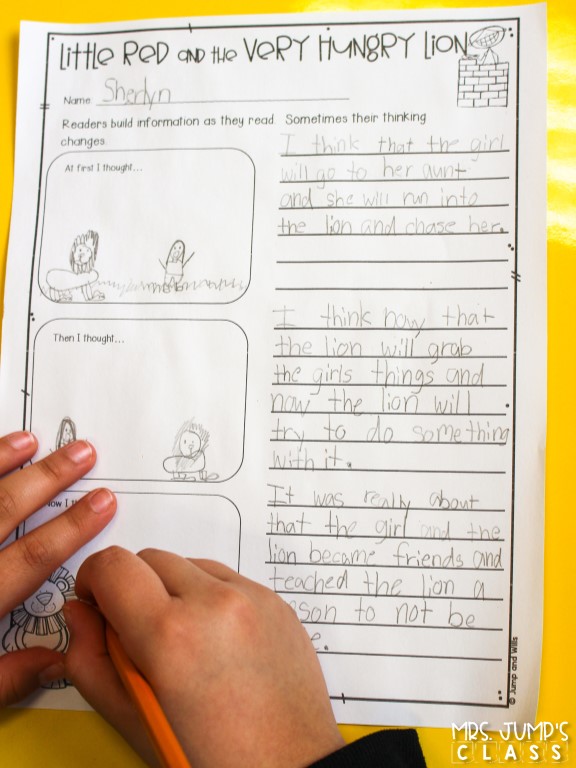 Little Red and the Very Hungry Lion
Name Sherlyn
Readers build information as they read. Sometimes their thinking
changes.
At first I thought...
I think that the girl
will go to her aunt
and she will run into
the lion and chase her.
Then I thought...
I think now that
the lion will grab
the girls things and
now the lion will
try to do something
with it.
Now I
It was really about
that the girl and the
lion became friends and
teached the lion a
son to not be
© Jump and Wills
MRS. JUMP'S
CLASS